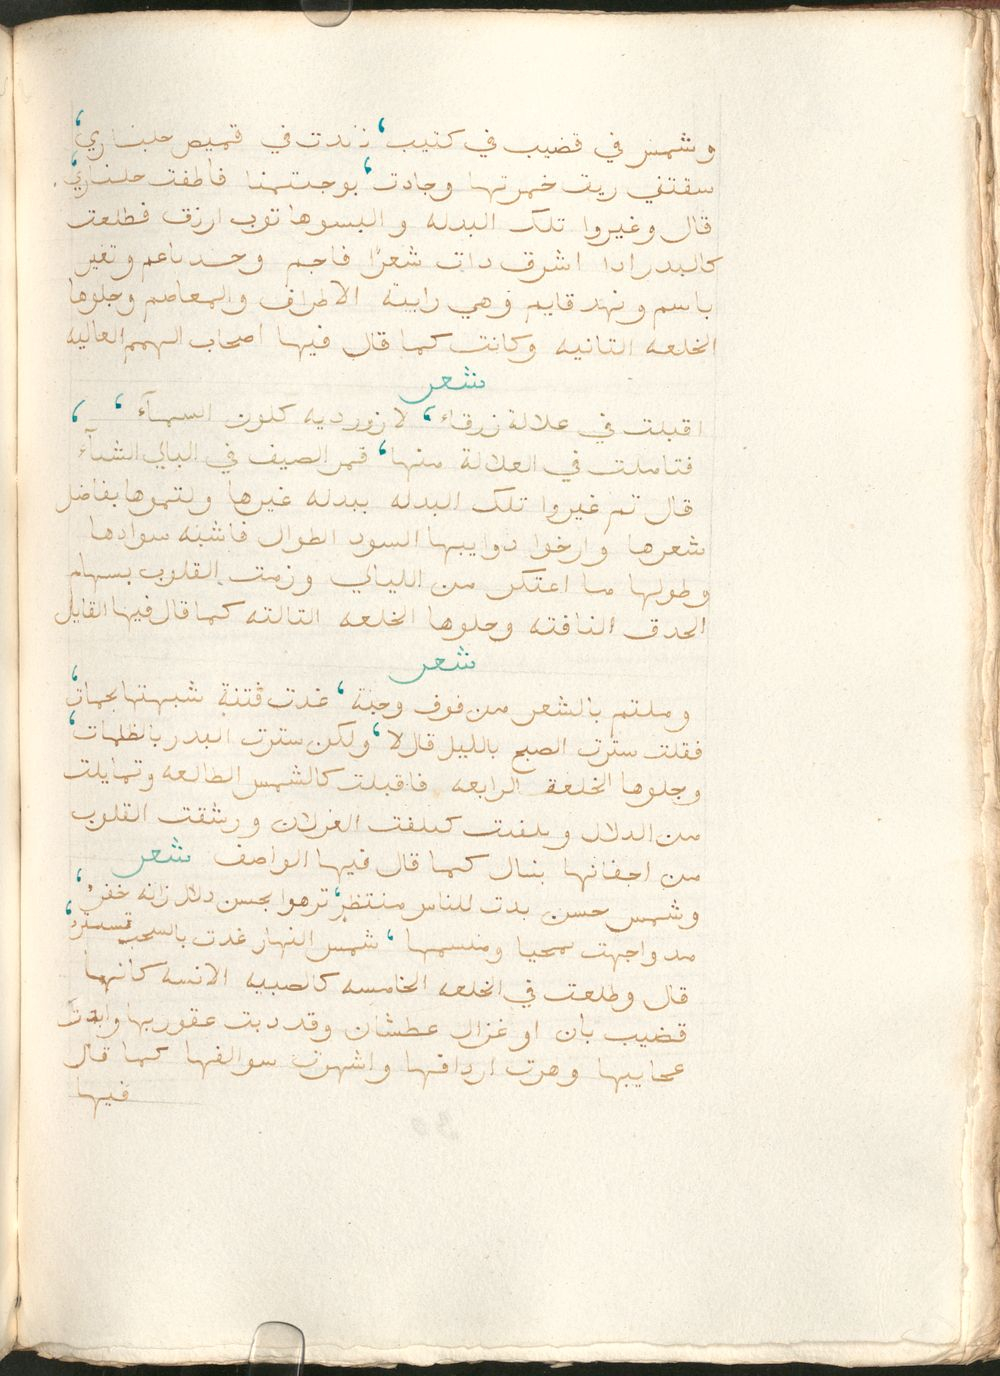 وشمس في قضيب في كتيب، تبدت في قميص جلناري،
سقتني ريق خمرتها وجادت، بوجنتها فاطفت جلناري،
قال وغيروا تلك البدله والبسوها توب ازرق فطلعت
كالبدر ادا اشرق دات شعرًا فاحم وخد ناعم وتغير
باسم ونهد قايم وهي رايبة الاطراف والمعاصم وجلوها
الخلعه التانيه وكانت كما قال فيها اصحاب الهمم العاليه
شعر
اقبلت في علالة زرقاء، لازورديه كلون السمآء، ،
فتاملت في العلالة منها، قمر الصيف في اليالي الشتآء
قال تم غيروا تلك البدله ببدله غيرها ولتموها بفاضل
شعرها وارخوا دوايبها السود الطوال فاشبه سوادها
وطولها ما اعتكر من الليالي ورمت القلوب بسهام
الحدق النافته وجلوها الخلعه التالته كما قال فيها القايل
شعر
وملتم بالشعر من فوق وجنة، غدت فتنة شبهتها بجمات،
فقلت سترت الصبح بالليل قال لا، ولكن سترت البدر بالظلمات،
وجلوها الخلعة الرابعه فاقبلت كالشمس الطالعه وتمايلت
من الدلال وتلفت كتلفت الغزلان ورشقت القلوب
من اجفانها بنبال كما قال فيها الواصف شعر
وشمس حسن بدت للناس منتظر، تزهوا بحسن دلال زانه خفر،
مد واجهت بمحيا ومبسمها، شمس النهار غدت بالسحب تستتر،
قال وطلعت في الخلعه الخامسه كالصبيه الانسه كانها
قضيب بان او غزال عطشان وقد دبت عقوربها وابدت
عجايبها وهزت اردافها واشهرت سوالفها كما قال
فيها